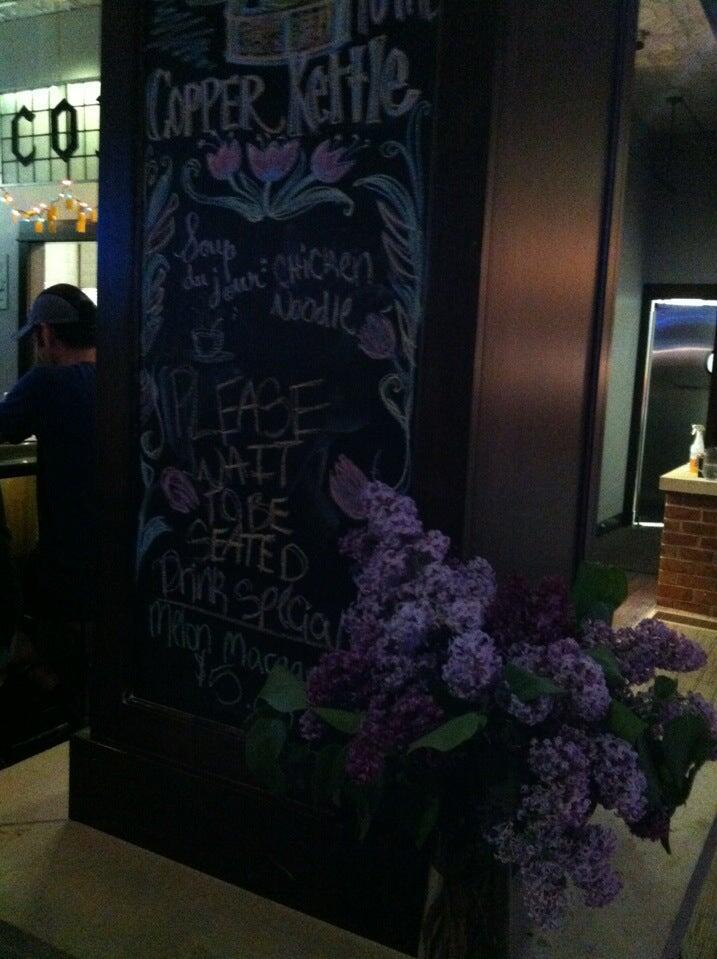 CO
COPPER Kettle
Soup du jour: CHICKEN Noodle
PLEASE
WAIT
TO BE
SEATED
Drink Special
Melon
$5